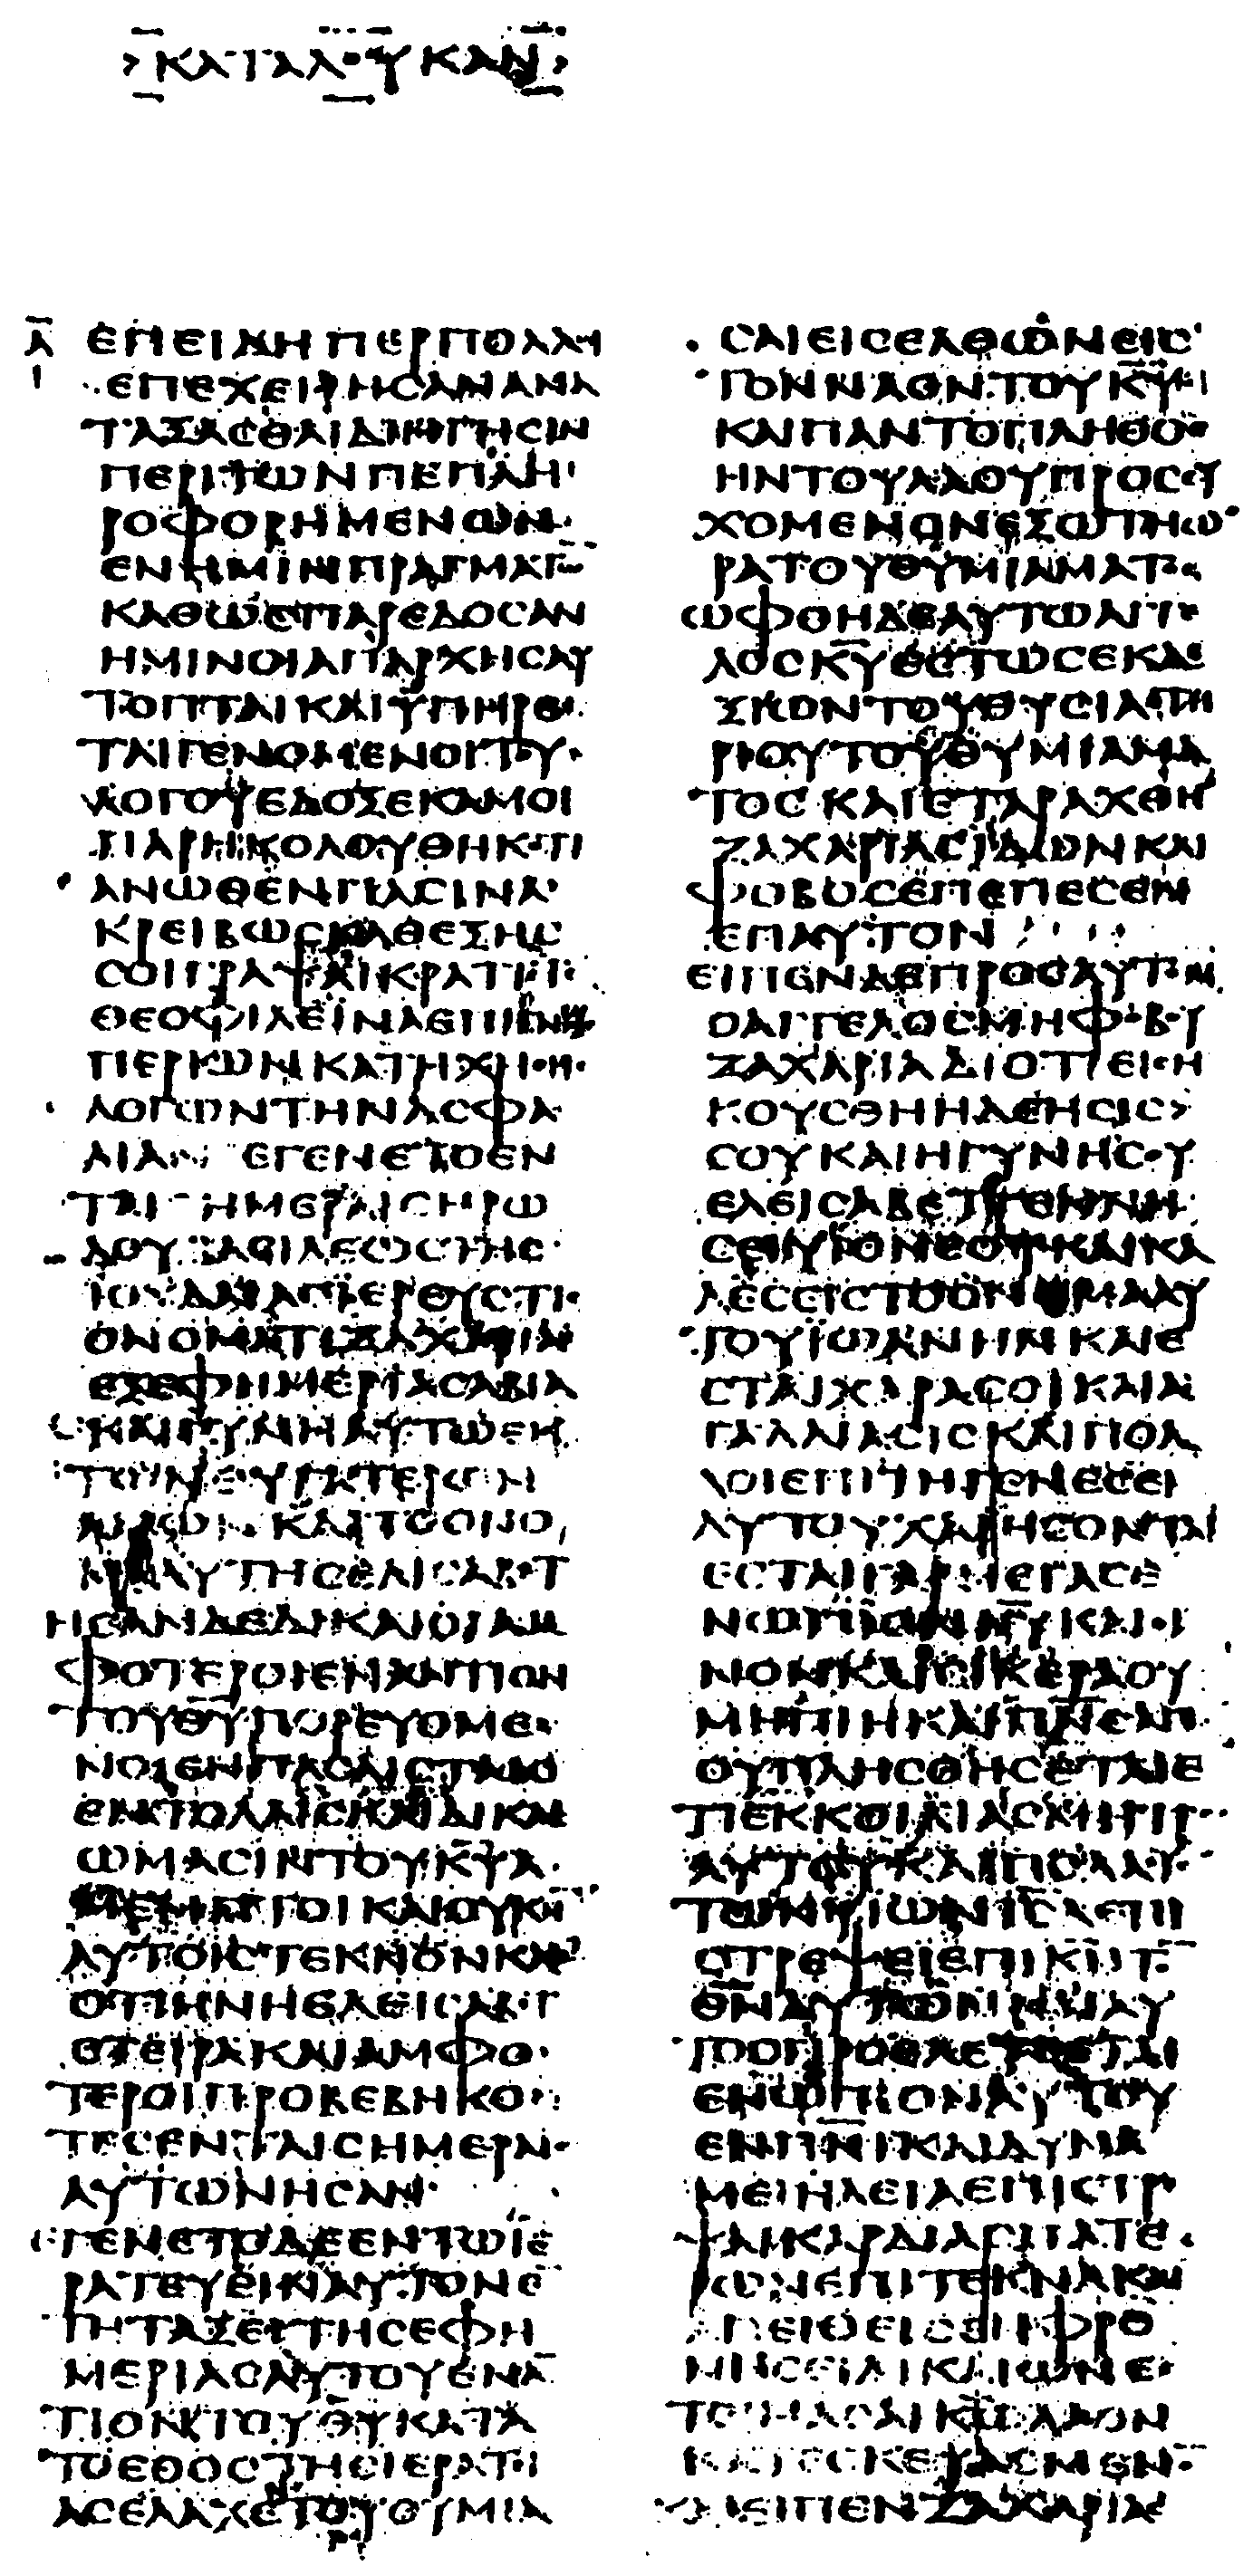 ΚΑΤΑΛΟΥΚΑΝ
Α ΕΠΕΙΔΗΠΕΡΠΟΛΛΟΙ
ΕΠΕΧΕΙΡΗΣΑΝΑΝΑ
ΤΑΞΑΣΘΑΙΔΙΗΓΗΣΙΝ
ΠΕΡΙΤΩΝΠΕΠΛΗ
ΡΟΦΟΡΗΜΕΝΩΝ
ΕΝΗΜΙΝΠΡΑΓΜΑΤΩ
ΚΑΘΩΣΠΑΡΕΔΟΣΑΝ
ΗΜΙΝΟΙΑΠΑΡΧΗΣΑΥ
ΤΟΠΤΑΙΚΑΙΥΠΗΡΕ
ΤΑΙΓΕΝΟΜΕΝΟΙΤΟΥ
ΛΟΓΟΥΕΔΟΞΕΚΑΜΟΙ
ΠΑΡΗΚΟΛΟΥΘΗΚΟΤΙ
ΑΝΩΘΕΝΠΑΣΙΝΑ
ΚΡΕΙΒΩΣΚΑΘΕΞΗΣ
ΣΟΙΓΡΑΨΑΙΚΡΑΤΙΣΤΕ
ΘΕΟΦΙΛΕΙΝΑΕΠΙΓΝΩΣ
ΠΕΡΙΩΝΚΑΤΗΧΗΘΗΣ
ΛΟΓΩΝΤΗΝΑΣΦΑ
ΛΙΑΝ ΕΓΕΝΕΤΟΕΝ
ΤΑΙΣΗΜΕΡΑΙΣΗΡΩ
ΔΟΥΒΑΣΙΛΕΩΣΤΗΣ
ΙΟΥΔΑΙΑΣΙΕΡΕΥΣΤΙΣ
ΟΝΟΜΑΤΙΖΑΧΑΡΙΑΣ
ΕΞΕΦΗΜΕΡΙΑΣΑΒΙΑ
ΚΑΙΓΥΝΗΑΥΤΩΕΚ
ΤΩΝΘΥΓΑΤΕΡΩΝ
ΑΑΡΩΝΚΑΙΤΟΟΝΟ
ΜΑΑΥΤΗΣΕΛΙΣΑΒΕΤ
ΗΣΑΝΔΕΔΙΚΑΙΟΙΑΜ
ΦΟΤΕΡΟΙΕΝΑΝΤΙΟΝ
ΤΟΥΘΥΠΟΡΕΥΟΜΕ
ΝΟΙΕΝΠΑΣΑΙΣΤΑΙΣ
ΕΝΤΟΛΑΙΣΚΑΙΔΙΚΑΙ
ΩΜΑΣΙΝΤΟΥΚΥΑ
ΜΕΜΠΤΟΙΚΑΙΟΥΚΗ
ΑΥΤΟΙΣΤΕΚΝΟΝΚΑΘ
ΟΤΙΗΝΗΕΛΕΙΣΑΒΕΤ
ΣΤΕΙΡΑΚΑΙΑΜΦΟ
ΤΕΡΟΙΠΡΟΒΕΒΗΚΟ
ΤΕΣΕΝΤΑΙΣΗΜΕΡΑΙΣ
ΑΥΤΩΝΗΣΑΝ
ΕΓΕΝΕΤΟΔΕΕΝΤΩΙΕ
ΡΑΤΕΥΕΙΝΑΥΤΟΝΕ
ΤΗΤΑΞΕΙΤΗΣΕΦΗ
ΜΕΡΙΑΣΑΥΤΟΥΕΝΑ
ΤΙΟΝΤΟΥΘΥΚΑΤΑ
ΤΟΕΘΟΣΤΗΣΙΕΡΑΤΙ
ΑΣΕΛΑΧΕΤΟΥΘΥΜΙΑ
ΣΑΙΕΙΣΕΛΘΩΝΕΙΣ
ΤΟΝΝΑΟΝΤΟΥΚΥ
ΚΑΙΠΑΝΤΟΠΛΗΘΟΣ
ΗΝΤΟΥΛΑΟΥΠΡΟΣΕΥ
ΧΟΜΕΝΟΝΕΞΩΤΗΩ
ΡΑΤΟΥΘΥΜΙΑΜΑΤΟΣ
ΩΦΘΗΔΕΑΥΤΩΑΓΓΕ
ΛΟΣΚΥΕΣΤΩΣΕΚΔΕ
ΞΙΩΝΤΟΥΘΥΣΙΑΣΤΗ
ΡΙΟΥΤΟΥΘΥΜΙΑΜΑ
ΤΟΣΚΑΙΕΤΑΡΑΧΘΗ
ΖΑΧΑΡΙΑΣΙΔΩΝΚΑΙ
ΦΟΒΟΣΕΠΕΠΕΣΕΝ
ΕΠΑΥΤΟΝ
ΕΙΠΕΝΔΕΠΡΟΣΑΥΤΟΝ
ΟΑΓΓΕΛΟΣΜΗΦΟΒΟΥ
ΖΑΧΑΡΙΑΔΙΟΤΙΕΙΣΗ
ΚΟΥΣΘΗΗΔΕΗΣΙΣ
ΣΟΥΚΑΙΗΓΥΝΗΣΟΥ
ΕΛΕΙΣΑΒΕΤΓΕΝΝΗ
ΣΕΙΥΙΟΝΣΟΙΚΑΙΚΑ
ΛΕΣΕΙΣΤΟΟΝΟΜΑΑΥ
ΤΟΥΙΩΑΝΗΝΚΑΙΕ
ΣΤΑΙΧΑΡΑΣΟΙΚΑΙΑ
ΓΑΛΛΙΑΣΙΣΚΑΙΠΟΛ
ΛΟΙΕΠΙΤΗΓΕΝΕΣΕΙ
ΑΥΤΟΥΧΑΡΗΣΟΝΤΑΙ
ΕΣΤΑΙΓΑΡΜΕΓΑΣΕ
ΝΩΠΙΟΝΚΥΚΑΙΟΙ
ΝΟΝΚΑΙΣΙΚΕΡΑΟΥ
ΜΗΠΙΗΚΑΙΠΝΣΑΓΙ
ΟΥΠΛΗΣΘΗΣΕΤΑΙΕ
ΤΙΕΚΚΟΙΛΙΑΣΜΗΤΡΟΣ
ΑΥΤΟΥΚΑΙΠΟΛΛΟΥΣ
ΤΩΝΥΙΩΝΙΣΛΕΠΙ
ΣΤΡΕΨΕΙΕΠΙΚΝΤΟ
ΘΝΑΥΤΩΝΚΑΙΑΥ
ΤΟΣΠΡΟΕΛΕΥΣΕΤΑΙ
ΕΝΩΠΙΟΝΑΥΤΟΥ
ΕΝΠΝΙΚΑΙΔΥΝΑ
ΜΕΙΗΛΕΙΑΕΠΙΣΤΡΕ
ΨΑΙΚΑΡΔΙΑΣΠΑΤΕ
ΡΩΝΕΠΙΤΕΚΝΑΚΑΙ
ΑΠΕΙΘΕΙΣΕΝΦΡΟ
ΝΗΣΕΙΔΙΚΑΙΩΝΕ
ΤΟΙΜΑΣΑΙΚΩΛΑΟΝ
ΚΑΤΕΣΚΕΥΑΣΜΕΝΟ
ΚΑΙΕΙΠΕΝΖΑΧΑΡΙΑΣ